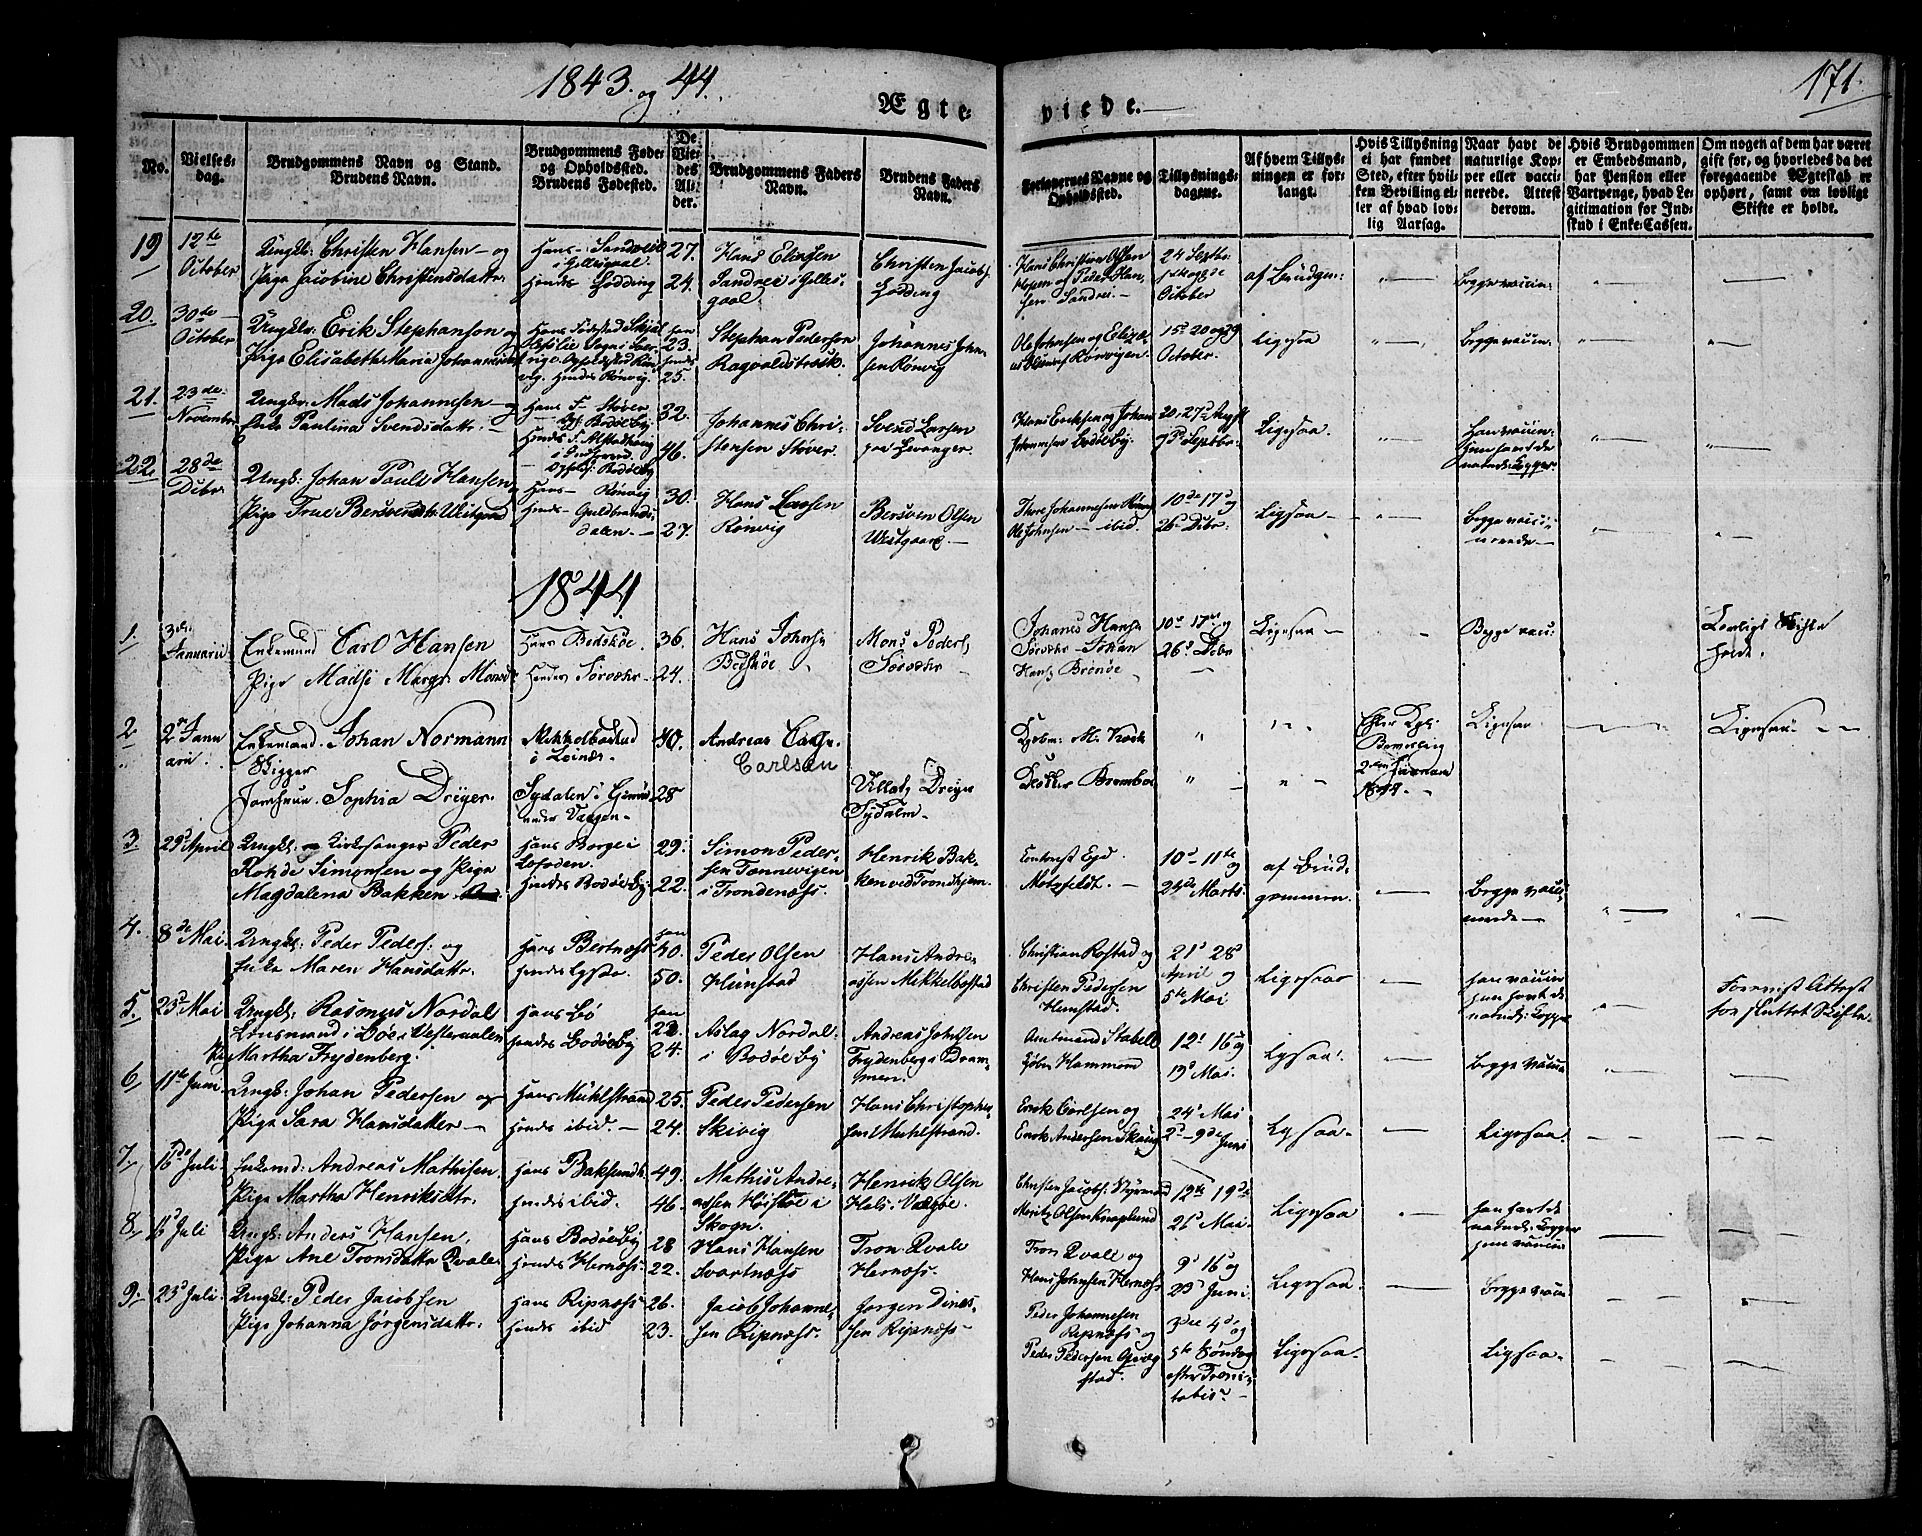 1843. og 44.
171.
Ægte-
viede.
No.
Vielses-
dag.
Brudgommens Navn og Stand.
Brudens Navn.
Brudgommens Føde-
og Opholdssted.
Brudens Fødested.
De
Vie-
des
Al-
der.
Brudgommens Faders
Navn.
Brudens Faders
Navn.
Forlovernes Navne og
Opholdssted.
Tillysnings-
dagene.
Af hvem Tillys-
ningen er for-
langt.
Hvis Tillysning
ei har fundet
Sted, efter hvil-
ken Bevilling el-
ler af hvad lov-
lig Aarsag.
Naar havt de
naturlige Kop-
per eller vacci-
nerede. Attest
derom.
Hvis Brudgommen
er Embedsmand,
har Pension eller
Vartpenge, hvad Le-
gitimation for Ind-
skud i Enke-Cassen.
Om nogen af dem har været
gift før, og hvorledes da det
foregaaende Ægteskab er
ophørt, samt om lovligt
Skifte er holdt.
19
12te
October
Ungk: Christen Hansen og
Pige Jacobine Christensdattr.
27.
24.
Hans Eliasen
Sandvei i Gilles-
gaal
Christen Jacobs.
Lødding
Hans Christian Olsen
og Peder Han-
sen Sandvei
24 Septbr
October
af Brudgom:
Begge vaccin:
20.
30te
October
Ungk: Erik Stephanson og
Pige Elisabetha Maria Johannesdtr
23.
25.
Stephan Pederson
Ragvaldstræsk.
Johannes Johan-
sen Rønvig
Ole Johnsen og
Rønvigen
15d 20 og 29
October.
Ligesaa
Begge vaccin:
21.
23de
November
Ungkr: Mads Johannesen og
Enke Paulina Svendsdattr.
Hans F. Støver
32.
46.
Johannes Chri-
stensen Støver.
Svend Larsen
paa Levanger.
Hans Ericksen og Johan
Johannesen Bodøe By.
Ligesaa.
Han vaccin:
22.
28de
Dcbr
Ungk: Johan Pauli Hansen
Pige True Bersvendtr Westgaard
Hans Rønvig
Hendes Guldbrands-
dalen.
30.
27.
Hans Larsen
Rønvig
Bersven Olsen
Westgaard
Thore Johannesen Rønvig
Ole Johnsen ibid.
10de 17d og
26d Dcbr.
Ligesaa
Begge vacci-
nerede
1844
1.
3die
Januarii
Enkemand Carl Hansen
Pige Madsi Margr. Monsdr
Hans Bedskøe.
Hendes Sørvær
36.
24.
Hans Johns.
Bedskøe
Mons Peders.
Sørvær
Johanes Hans.
Sørvær Johan
Hans. Bremøe
10d 17de og
26d Dcbr
Ligesaa
Begge vacc:
Lovligt Skifte
holdt.
2
2den Janu
arii.
Enkemand Johan Normann
Bigger
Jomfrue Sophia Dreyer.
Mikkelbostad
Sydalen i Gimsøe
under Vaagen
40.
28
Andreas
Carlsen
Villas Dreyer
Sydalen.
Kjøbm. M. Koch
Klokker Bremboe
Efter Kgl:
Bevilling
2den Januar
1844.
Ligesaa
Ligesaa
3.
29d April
Ungk: og Kirkesanger Peder
Rohde Simonsen og Pige
Magdalena Bakken
Hans Borge i
Lofoden.
Hendes Bodøe By
29.
22.
Simon Peder-
sen Tennevigen
i Trondenæss.
Henrik Bak-
ken ved Trondhjem.
Motzfeldt.
10d 11te og
24de Marts
af Brud-
gommen.
Begge vacci-
nerede
4.
8de Mai
Ungk: Peder Peders: og
Enke Maren Hansdattr.
Hans Bertnæss
Hendes Lysøe.
40.
50.
Peder Olsen
Hunstad
Hans Andre-
asen Mikkelbostad
Christian Rostad og
Christen Pedersen
Hunstad.
21d 28
April og
5te Mai
Ligesaa
Han vaccin
hun havt de
naturl: Kopper
Forevist Attest
for sluttet Skifte.
5.
23d Mai
Ungk: Rasmus Nordal
Lensmand i Boe i Vesteraalen
Pig Martha Frydenberg.
Hans Bö
Hendes Bodøe By
22.
24.
Aslag Nordal
i Bodøe By
Andreas Johnsen
Frydenberg i Dram-
men.
Amtmand Stabell
Kjøbm Hammond
12d 16d og
19d Mai.
Ligesaa.
Begge vaccin
6.
11te Juni
Ungk: Johan Pedersen og
Pige Sara Hansdatter
Hans Mühlstrand
Hendes ibid.
25.
24.
Peder Pedersen
Skivig
Hans Christophe-
sen Muhlstrand.
Erick Carlsen og
Erick Andersen Skaug
24d Mai
2d 9de Juni
Ligesaa.
Ligesaa.
7.
16d Juli
Enkemd: Andreas Mathisen
Pige Martha Henriksdtr.
Hans Baksund
Hendes ibid.
49.
46.
Mathis Andre-
asen Høistøe i
Skogn.
Henrik Olsen
Hals. Værøe.
Christen Jacobs. Styrmand
Moritz Olsen Knaplund
12te 19de
26d Mai.
Ligesaa
Han havt de
naturl: Kopper
hun vaccin
8.
Juli
Ungk: Anders Hansen,
Pige Ane Tronsdattr Qvale
Hans Bodøe By
Hendes Hernæss.
28
22.
Hans Hansen
Svartnæss
Tron Qvale
Hernæss.
Tron Qvale og
Hans Johnsen Hernæss
9d 16d og
23d Juni
Ligesaa
Begge vaccin
9.
23d Juli
Ungk: Peder Jacobsen
Pige Johanna Jørgensdattr.
Hans Ripnæss
Hendes ibid
26.
23.
Jacob Johanne-
sen Ripnæss.
Jørgen Dines-
sen Ripnæss
Peder Johannesen
Ripnæss og
Peder Pedersen
stad.
3die 4de og
5te Søndag
efter Trini-
tatis.
Ligesaa.
Ligesaa.